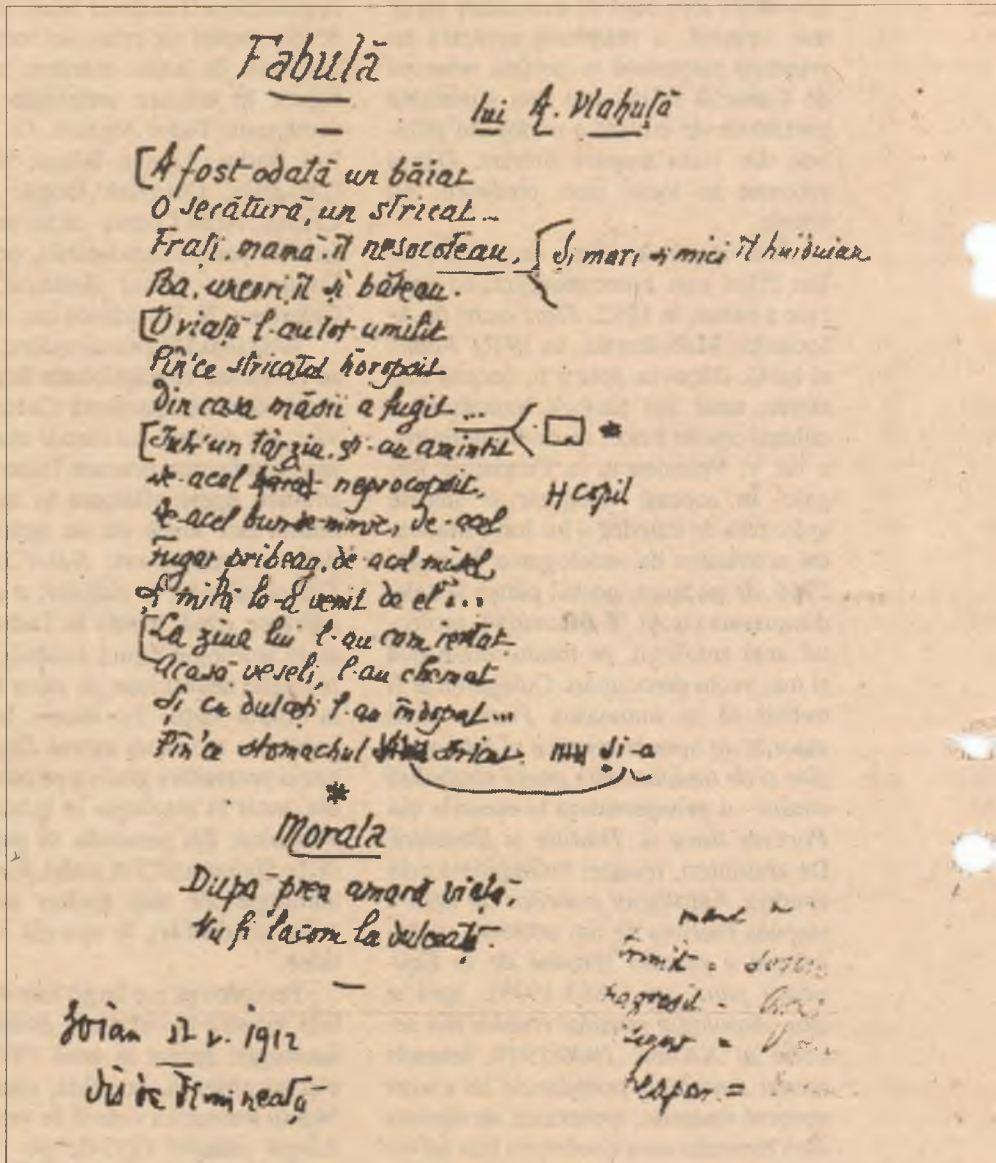 Fabulă
lui A. Vlahuță
[A fost odată un băiat
O secătură, un stricat...
Frați, mamă, îl nesocoteau, { Și mari și mici îl huiduiau
Ba, uneori, îl și băteau.
[O viață l-au tot umilit
Pîn'ce stricatul horopsit
Din casa măsii a fugit... *
[Într'un tîrziu, și-au amintit
de-acel neprocopsit, H copil
de-acel bun de nimic, de-acel
fugar pribeag, de acel mișel,
Și milă le-a venit de el...
[La ziua lui l-au
acasă veseli, l-au chemat
Și cu dulceți l-au îndopat...
Pîn'ce stomachul stricat. și-a
*
Morala
După prea amară viață,
Nu fi lacom la dulceață.
Joian 12 v. 1912
dis de dimineață